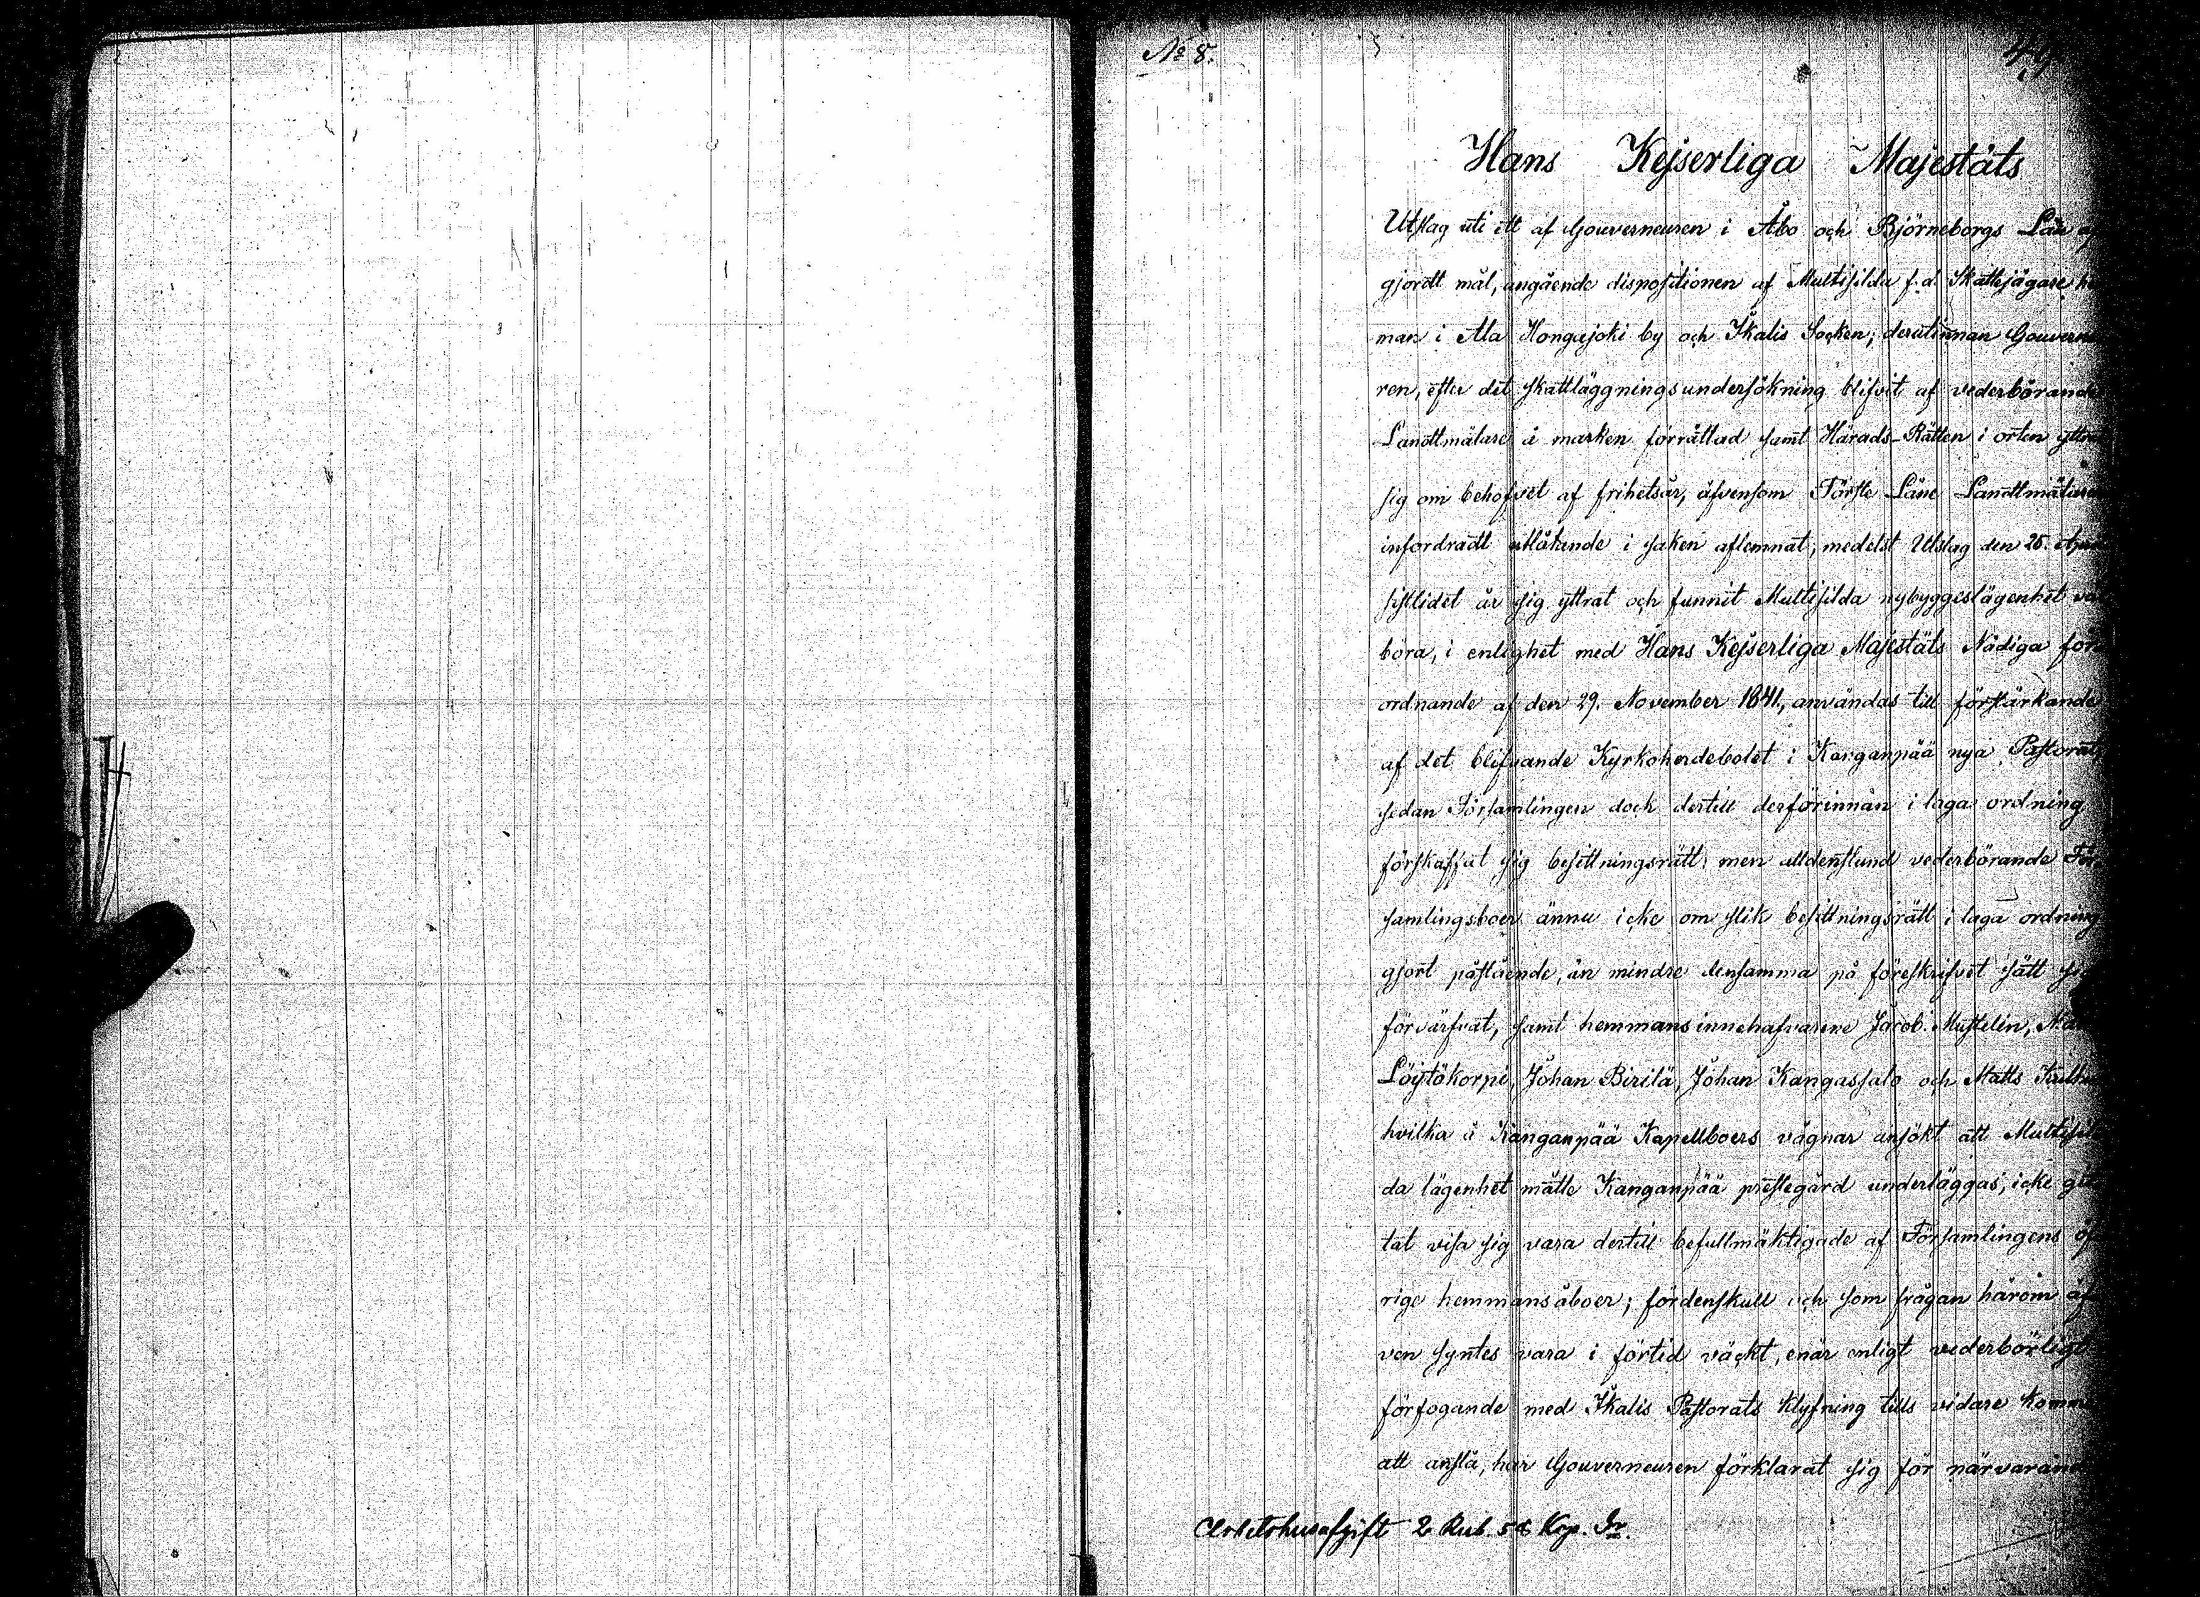 No 8.
Hans Kejserliga Majestäts
Utslag uti ett af Gouverneuren i Åbo och Björneborgs Län af
gjordt mål, angående dispositionen af Multisilda f. d. Skattejägare he
man i Ala Hongujoki by och Ikalis Socken; derutinnan Gouverne
ren, efter det skattläggningsundersökning blifvit af vederbörande
Landtmätare å marken förrättad samt Härads-Rätten i orten yttra
sig om behofvet af frihetsår, äfvensom Förste Läne Landtmätaren
infordradt utlåtande i saken aflemnat, medelst Utslag den 25. April
sistlidet år sig yttrat och funnit Multisilda nybyggeslägenhet vä
böra, i enlighet med Hans Kejserliga Majestäts Nådiga för
ordnande af den 29. November 1841, användas till förstärkande
af det blifvande Kyrkoherdebolet i Kanganpää nya Pastorat,
sedan Församlingen doch dertill derförinnan i laga ordning
förskaffat sig besittningsrätt; men alldenstund vederbörande För
samlingsboer ännu icke om slik besittningsrätt i laga ordning
gjort påstående, än mindre densamma på föreskrifvet sätt sig
förvärfvat, samt hemmansinnehafvarene Jacob Mustelin,
Löytökorpi, Johan Birilä, Johan Kangassalo och Matts
hvilka å Kanganpää Kapellboers vägnar ansökt att Multisil
da lägenhet måtte Kanganpää prestegård underläggas, icke git
tat visa sig vara dertill befullmäktigade af Församlingens öf
rige hemmansåboer; fördenskull och som frågan härom äf
ven syntes vara i förtid väckt, enär enligt vederbörligt
förfogande med Ikalis Pastorats klyfning tills vidare komme
att anstå, har Gouverneuren förklarat sig för närvarande
Arbetshusafgift 2 Rub. 58 Kop. Sr.